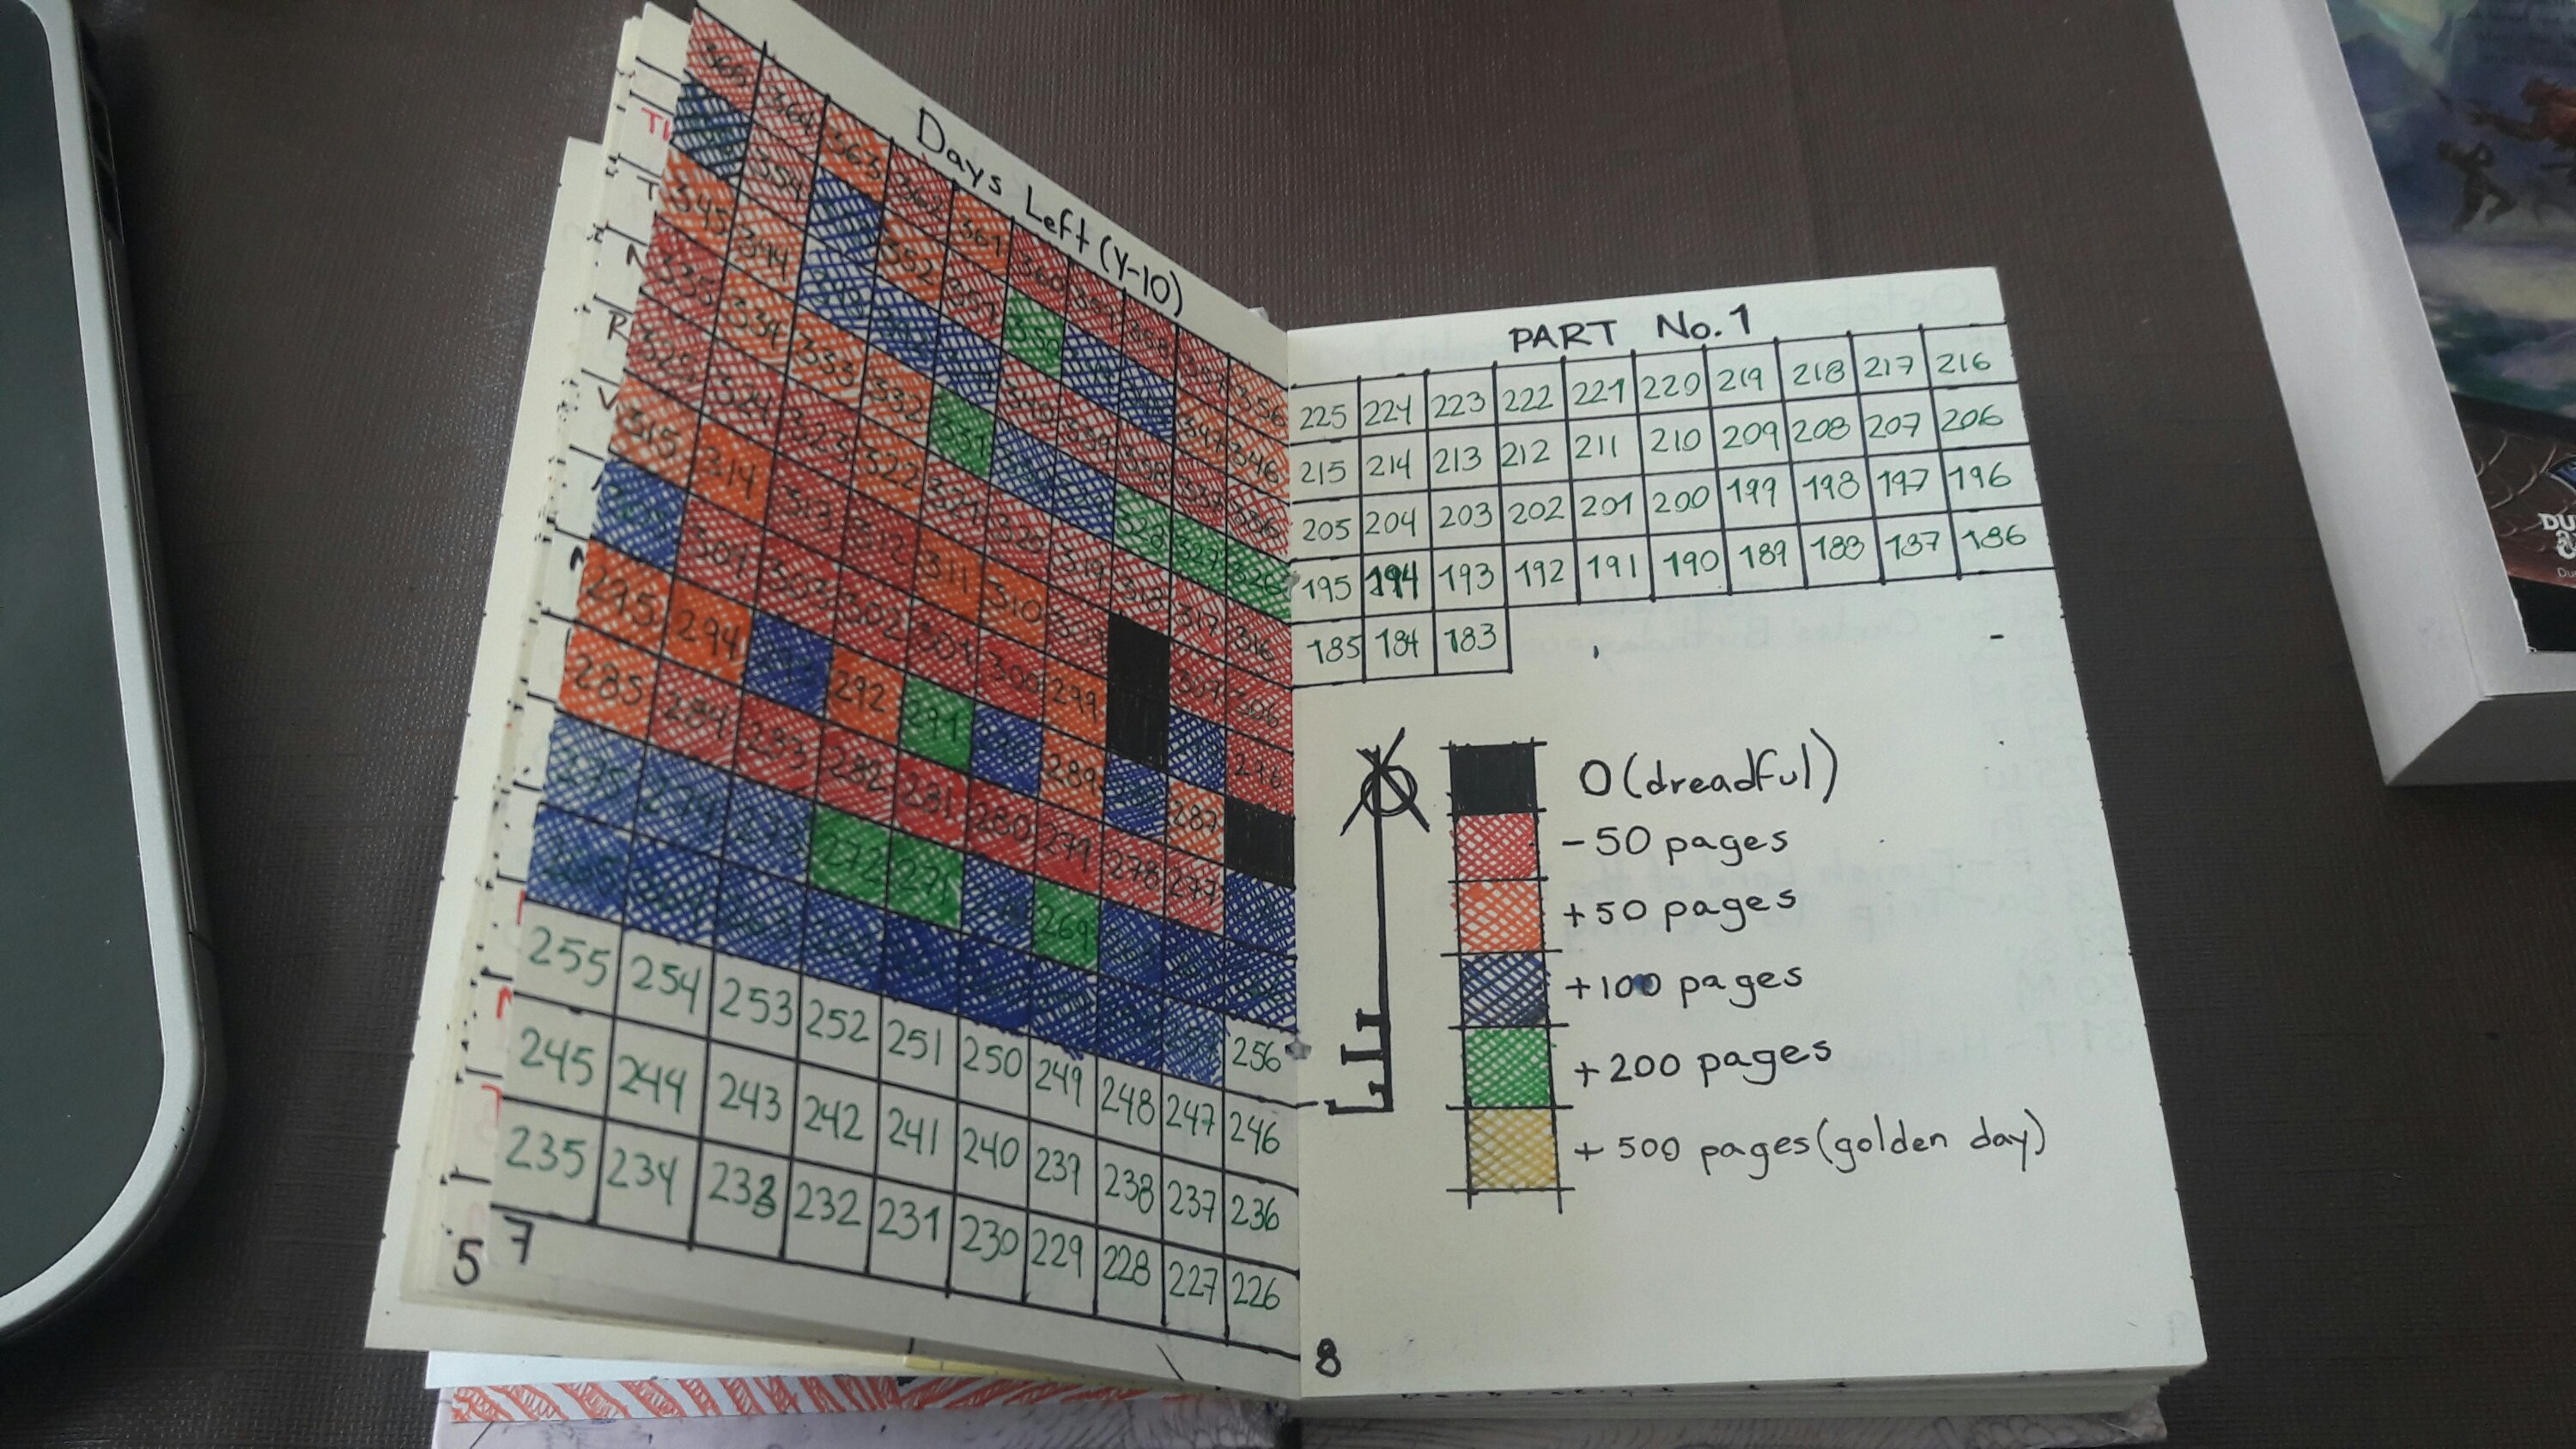 Days Left (Y-10)
365 364 363 362 361 360 359 358 357 356
354 352 351 350 347 346
345 344 343 342 340 339 338 337 336
335 334 333 332 331 328 327 326
325 324 323 322 321 320 319 318 317 316
315 314 313 312 311 310 309 307 306
304 303 302 301 300 299 296
295 294 292 291 289 287
285 284 283 282 281 280 279 278 277
275 274 273 272 271 269
255 254 253 252 251 250 249 248 247 256
245 244 243 242 241 240 239 238 237 246
235 234 233 232 231 230 229 228 227 236
226
7
5
PART No.1
225 224 223 222 221 220 219 218 217 216
215 214 213 212 211 210 209 208 207 206
205 204 203 202 201 200 199 198 197 196
195 194 193 192 191 190 189 188 187 186
185 184 183
0 (dreadful)
-50 pages
+50 pages
+100 pages
+200 pages
+500 pages (golden day)
8